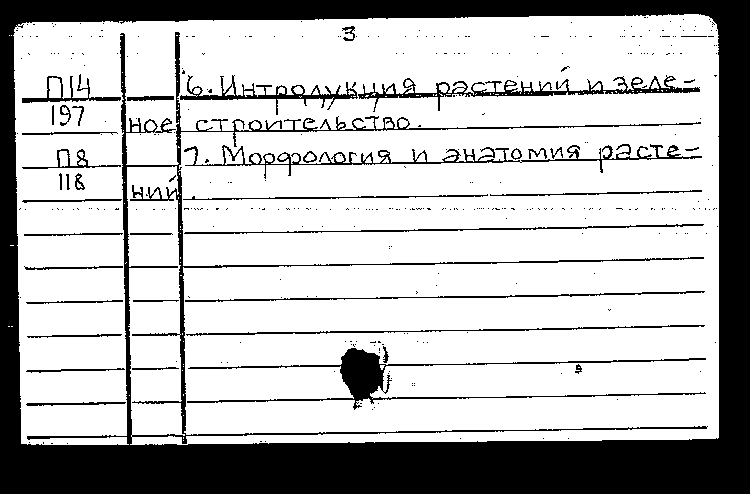 3
П14 6. Интродукция растений и зеле-
197 ное строительство.
П8 7. Морфология и анатомия расте-
118 ний.